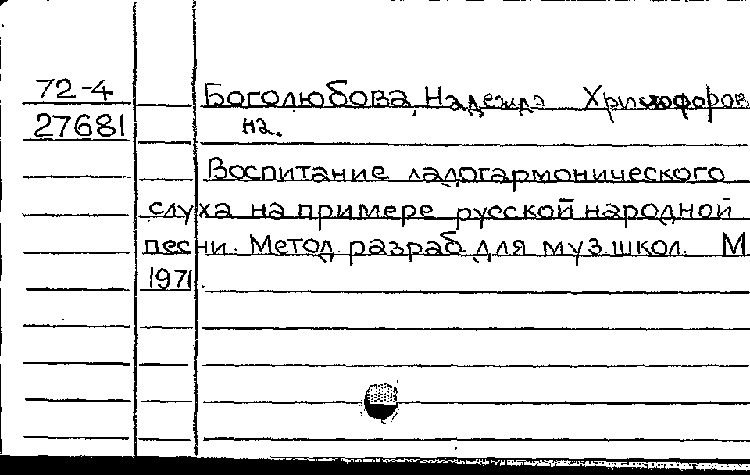 72-4
Боголюбова, Надежда Христофоров
27681
на.
Воспитание ладогармонического
слуха на примере русской народной
песни. Метод. разраб. для муз. школ. М
1971.